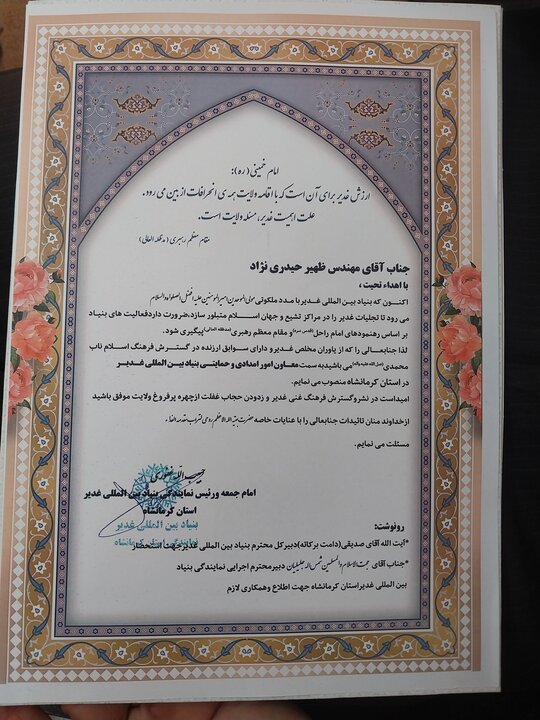 امام خمینی (ره):
ارزش غدیر برای آن است که با اقامه ولایت همه ی انحرافات از بین می رود.
علت اهمیت غدیر، مسئله ولایت است.
مقام معظم رهبری (مدظله العالی)
جناب آقای مهندس ظهیر حیدری نژاد
با اهداء تحیت ،
اکنون که بنیاد بین المللی غدیر با مدد ملکوتی مولی الموحدین امیرالمومنین علیه افضل الصلواه والسلام
می رود تا تجلیات غدیر را در مراکز تشیع و جهان اسلام متبلور سازد، ضرورت دارد فعالیت های بنیاد
بر اساس رهنمودهای امام راحل (قدس سره) و مقام معظم رهبری (مدظله العالی) پیگیری شود.
لذا جنابعالی را که از یاوران مخلص غدیر و دارای سوابق ارزنده در گسترش فرهنگ اسلام ناب
محمدی (صل الله علیه واله) می باشید به سمت معاون امور امدادی و حمایتی بنیاد بین المللی غدیر
در استان کرمانشاه منصوب می نمایم.
امیداست در نشر و گسترش فرهنگ غنی غدیر و زدودن حجاب غفلت از چهره پرفروغ ولایت موفق باشید
از خداوند منان تائیدات جنابعالی را با عنایات خاصه حضرت بقیه الله الاعظم روحی لتراب مقدمه الفداء
مسئلت می نمایم.
حبیب الله غفوری
امام جمعه و رئیس نمایندگی بنیاد بین المللی غدیر
استان کرمانشاه
بنیاد بین المللی غدیر
نمایندگی استان کرمانشاه
رونوشت:
*آیت الله آقای صدیقی (دامت برکاته) دبیر کل محترم بنیاد بین المللی غدیر جهت استحضار
*جناب آقای حجت الاسلام والمسلمین شمس اله جلیلیان دبیر محترم اجرایی نمایندگی بنیاد
بین المللی غدیر استان کرمانشاه جهت اطلاع و همکاری لازم